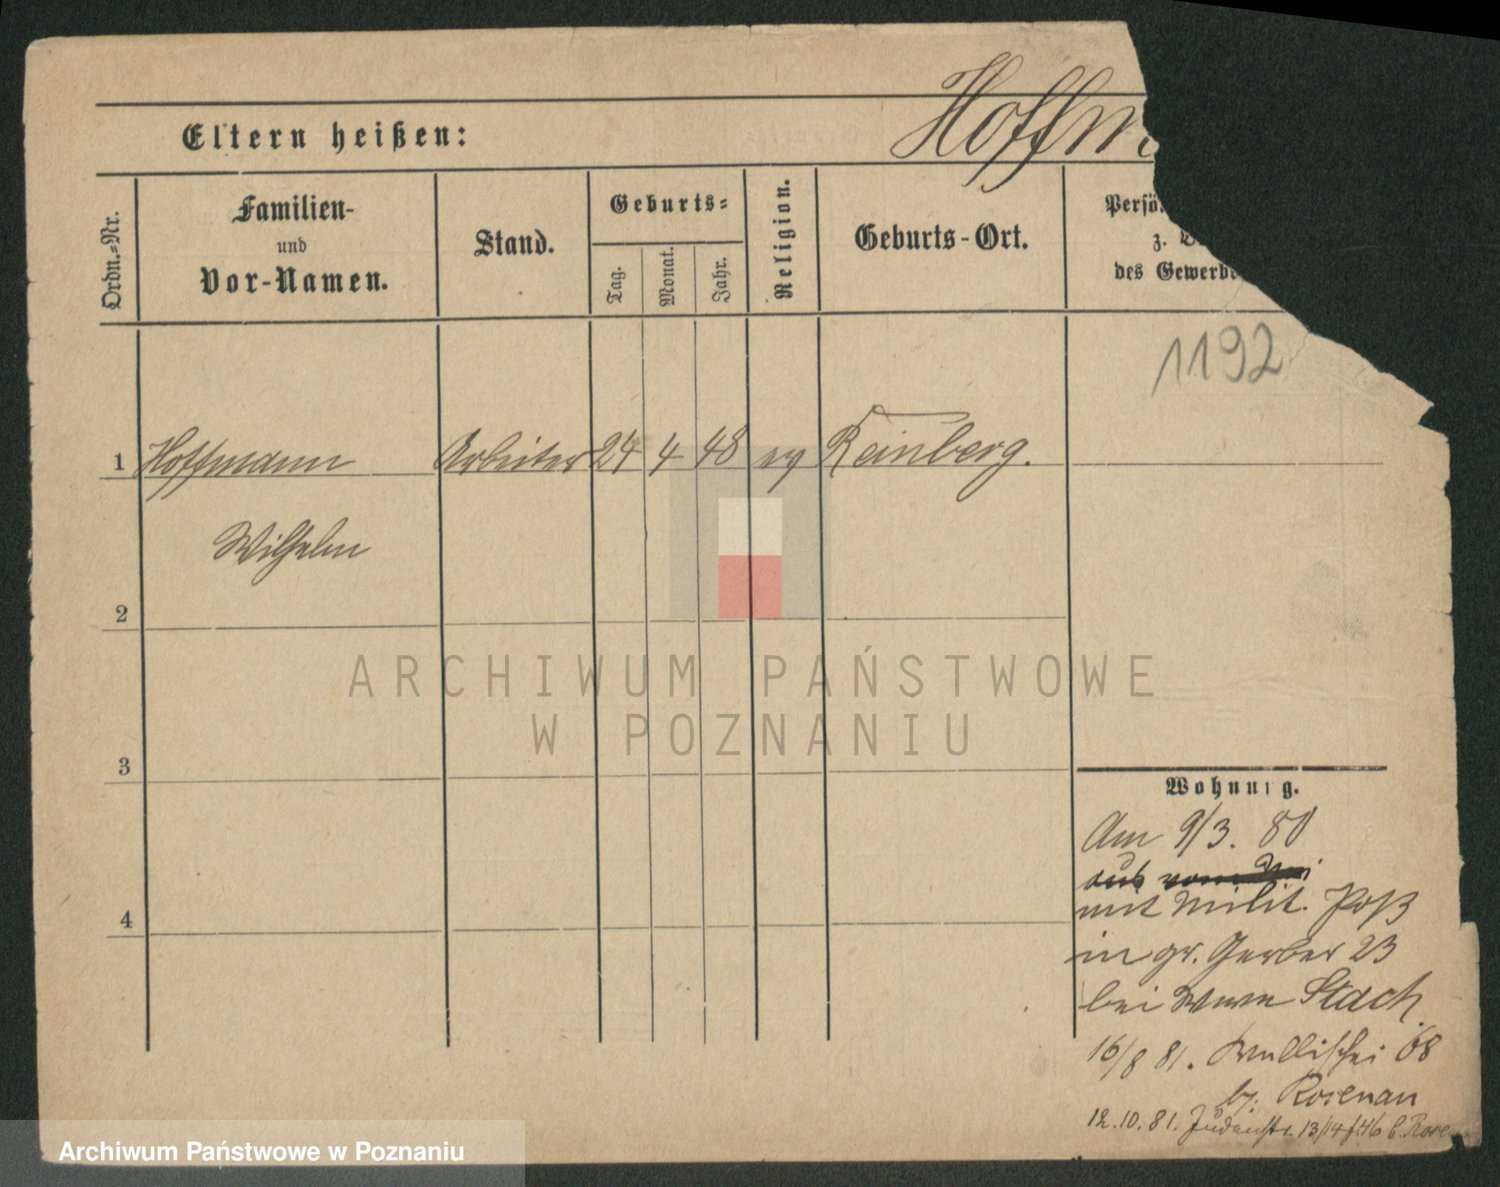 Hoffm
Eltern heißen:
Ordn.-Nr.
Familien-
und
Vor-Namen.
Stand.
Geburts-
Tag.
Monat.
Jahr.
Religion.
Geburts-Ort.
Persö
z.
des Gewerbe
1192
1 Hoffmann Arbeiter 24 4 48 ev Reinberg.
Wilhelm
2
3
4
Wohnung.
Am 9/3. 80
aus
mit Milit. Paß
in gr. Gerber 23
bei Wwe Stach
16/8 81. Wallischei 68
bj. Rosenau
12.10.81. Judenstr. 13/14 b. Rose
ARCHIWUM PAŃSTWOWE
W POZNANIU
Archiwum Państwowe w Poznaniu